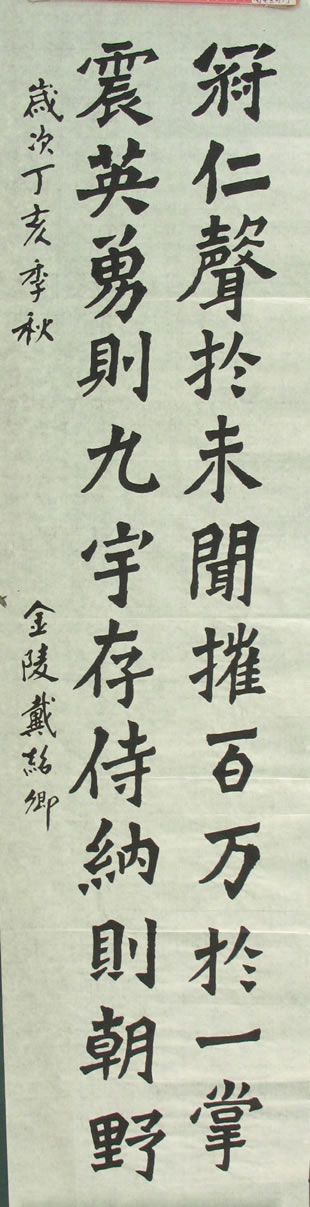 冠仁聲於未聞摧百万於一掌
震英勇則九宇存侍納則朝野
歲次丁亥季秋
金陵戴卿